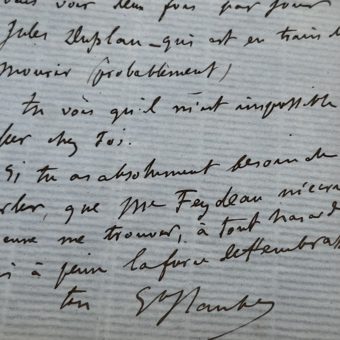 vais voir deux fois par jour
Jules Duplan – qui est en train de
mourir (probablement)
Tu vois qu'il m'est impossible
aller chez Toi.
Si tu as absolument besoin de
parler, que Me Feydeau m'écrive
vienne me trouver, à tout hasard
ai à peine la force de t'embrasser
ton Gve Flaubert